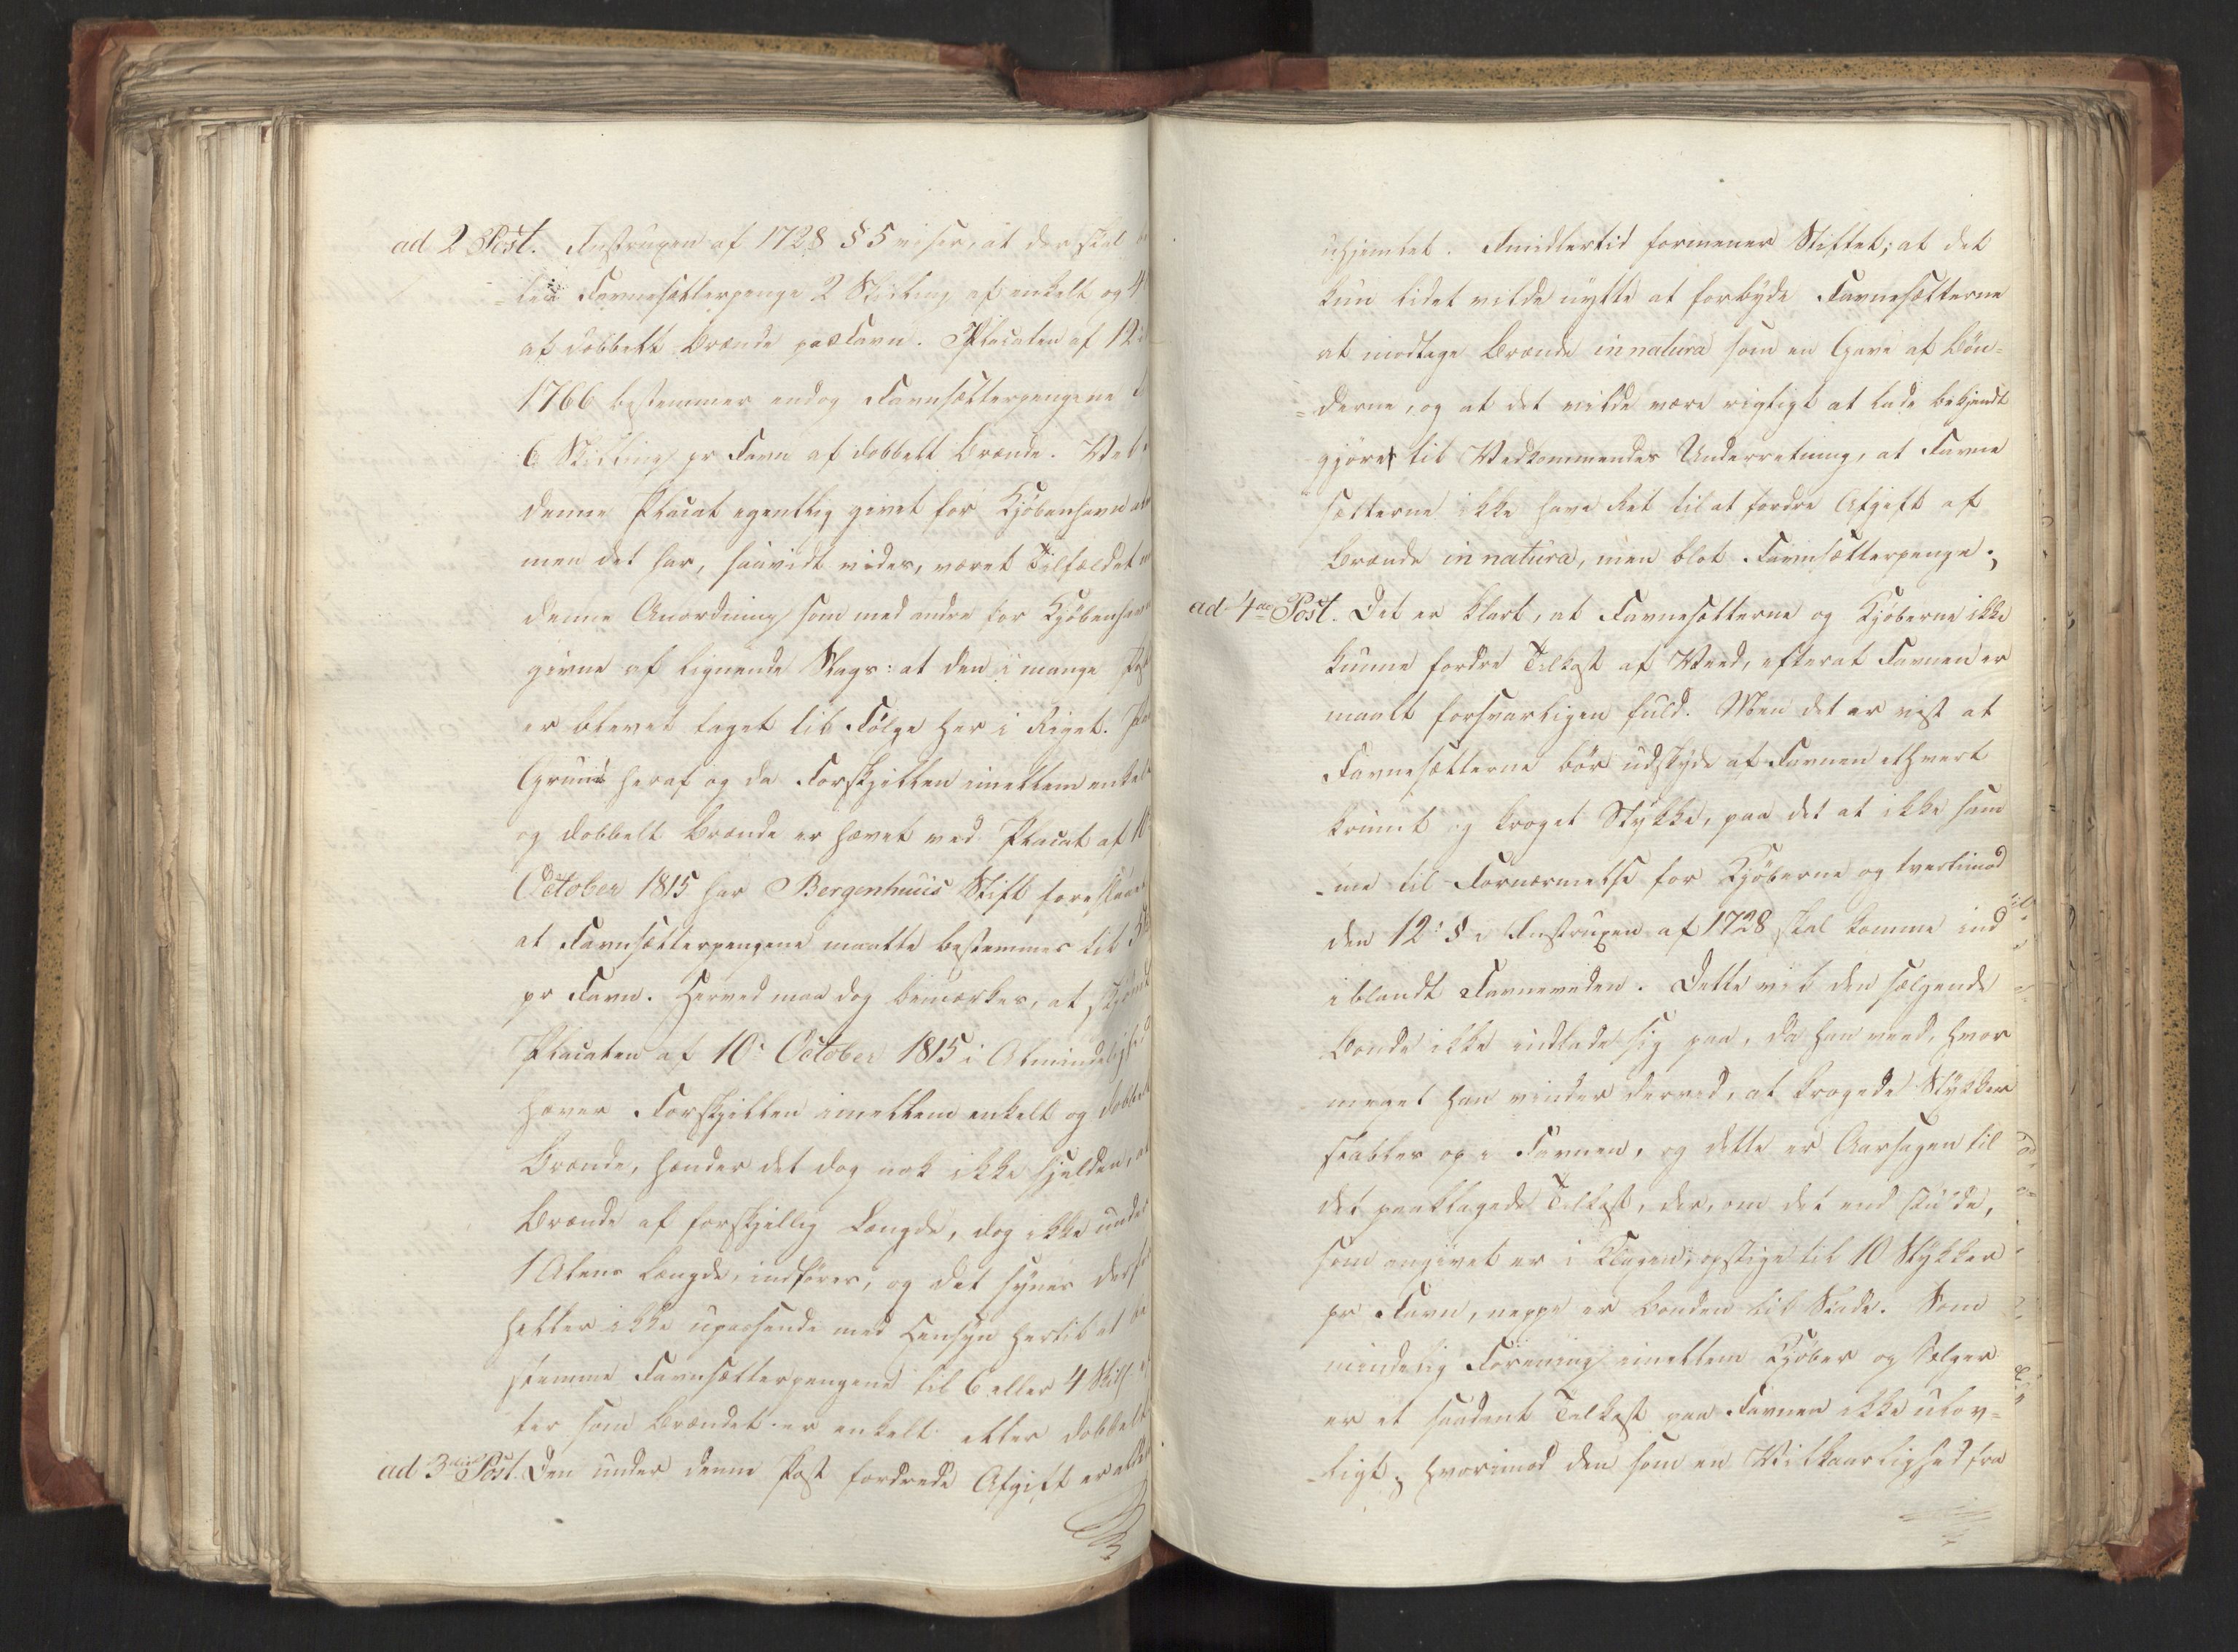 ad 2 Post. Instruxen af 1728 § 5 viser, at der skal
Favnesætterpenge 2 Skilling af enkelt og 4
af dobbelt Brænde pr Favn. Placaten af 12
1766 bestemmer endog Favnsætterpengene
6 Skilling pr Favn af dobbelt Brænde. Vel
denne Placat egentlig givet for Kjøbenhavn
men det har, saavidt vides, været Tilfældet
denne Anordning som med andre for Kjøbenhavn
givne af lignende Slags: at den i mange
er blevet taget til Følge her i Riget.
Grund heraf og da Forskjellen imellem enkelt
og dobbelt Brænde er hævet ved Placat af 10
October 1815 har Bergenhuus Stift foreslaaet
at Favnsætterpengene maatte bestemmes til 5
pr Favn. Herved maa dog bemærkes, at skjøndt
Placaten af 10de October 1815 i Almindelighed
hæver Forskjellen imellem enkelt og dobbelt
Brænde, hænder det dog nok ikke sjelden, at
Brænde af forskjellig Længde, dog ikke under
1 Alens Længde, indføres, og det synes derfor
heller ikke upassende med Hensyn hertil at be
stemme Favnsætterpengene til 6 eller 4 Skill
ter som Brændet er enkelt eller dobbelt
ad 3die Post. Den under denne Post fordrede Afgift er aldeles
uhjemlet. Imidlertid formener Stiftet; at det
kun lidet vilde nytte at forbyde Favnesætterne
at modtage Brænde in natura som en Gave af Bøn=
=derne, og at det vilde være rigtigt at lade bekjendt
gjøres til Vedkommendes Underretning, at Favne
sætterne ikke have Ret til at fordre Afgift af
Brænde in natura, men blot Favnsætterpenge;
ad 4de Post. Det er klart, at Favnesætterne og Kjøberne ikke
kunne fordre Tilkast af Veed, efterat Favnen er
maalt forsvarligen fuld. Men det er vist at
Favnesætterne bør udskyde af Favnen ethvert
krumt og kroget Stykke, paa det at ikke sam
=me til Fornærmelse for Kjøberne og tvertimod
den 12te § i Instruxen af 1728 skal komme ind
iblandt Favneveden. Dette vil den sælgende
Bonde ikke indlade sig paa, da han veed, hvor
meget han vinder derved, at krogede Stykker
stables op i Favnen, og dette er Aarsagen til
det paaklagede Tilkast, der, om det end skulde,
som angivet er i Klagen, opstige til 10 Stykker
pr Favn, neppe er Bonden til Skade. Som
mindelig Forening imellem Kjøber og Sælger
er et saadant Tilkast paa Favnen ikke ulov=
=ligt; hvorimod den som en Vilkaarlighed fra